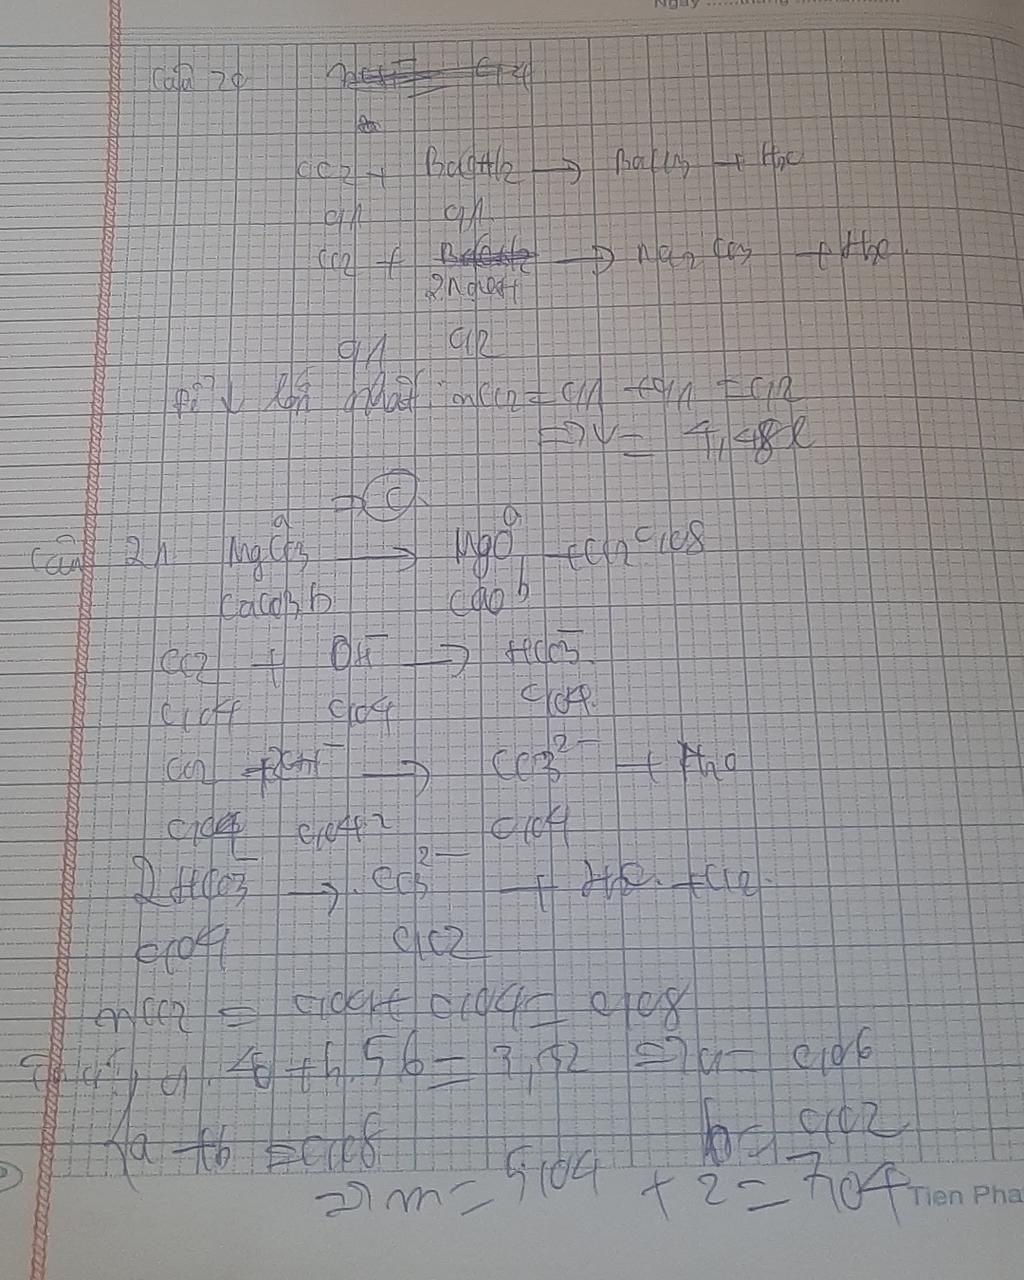 Ngày
Câu 20
CO2 + Ba(OH)2 → BaCO3 + H2O
0,1 0,1
CO2 + 2NaOH → Na2CO3 + H2O
0,1 0,2
để ↓ lớn nhất nCO2 = 0,1 + 0,1 = 0,2
=> V = 4,48 l
→ C
Câu 21 MgCO3 a → MgO a + CO2 0,08
CaCO3 b CaO b
CO2 + OH- → HCO3-
0,04 0,04 0,04
CO2 + 2OH- → CO3 2- + H2O
0,04 0,04.2 0,04
2HCO3- → CO3 2- + H2O + CO2
0,04 0,02
nCO2 = 0,04 + 0,04 = 0,08
a.40 + b.56 = 3,52 => a = 0,06
a + b = 0,08 b = 0,02
=> m = 5,04 + 2 = 7,04
Tien Pha